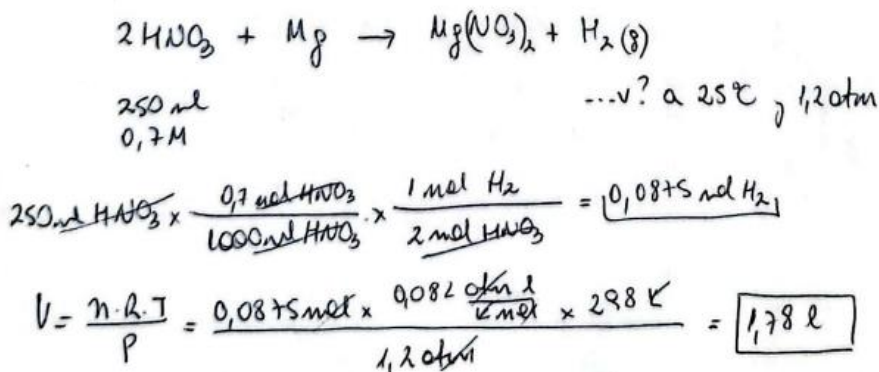 2 HNO₃ + Mg → Mg(NO₃)₂ + H₂ (g)
250 ml ...v? a 25°C y 1,2 atm
0,7 M
250 ml HNO₃ × 0,7 mol HNO₃ / 1000 ml HNO₃ × 1 mol H₂ / 2 mol HNO₃ = 0,0875 mol H₂
V = n.R.T / P = 0,0875 mol × 0,082 atm l / K mol × 298 K / 1,2 atm = 1,78 l